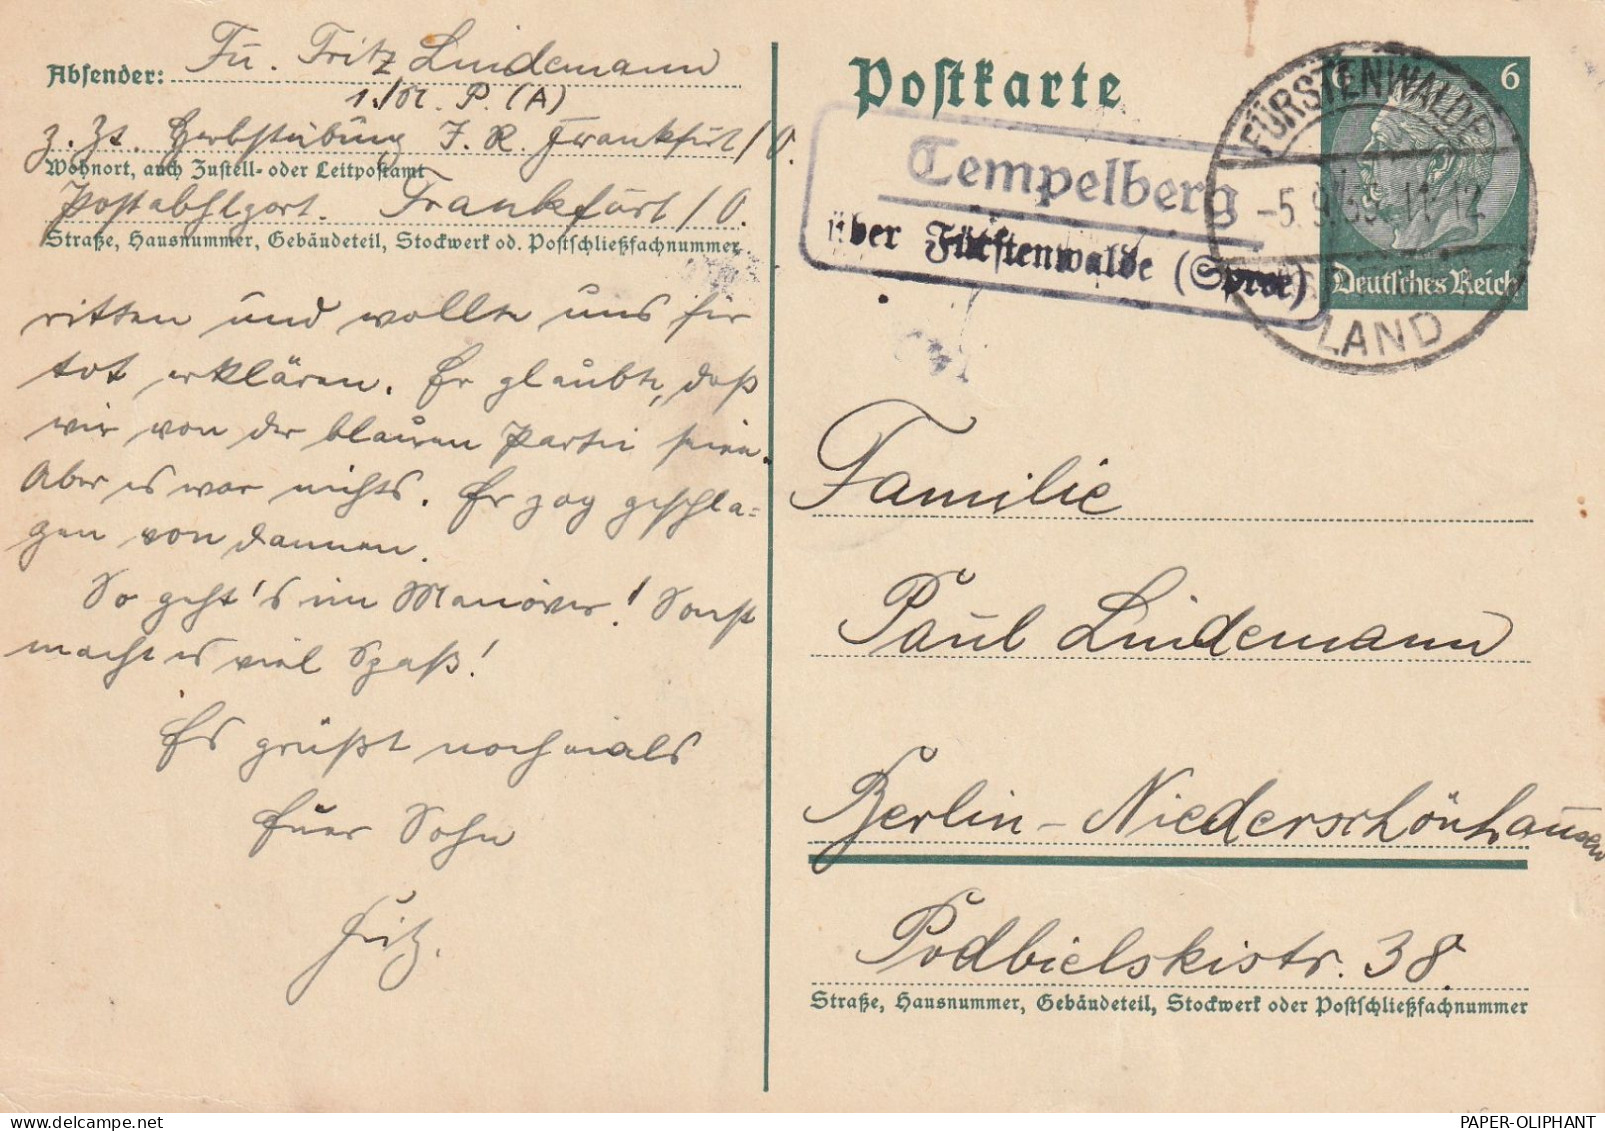 Absender: Fu. Fritz Lindemann
1./Pi. P. (A)
z. Zt. Herbstübung J. R. Frankfurt/O.
Wohnort, auch Zustell- oder Leitpostamt
Postabhlgort. Frankfurt/O.
Straße, Hausnummer, Gebäudeteil, Stockwerk od. Postschließfachnummer
ritten und wollte uns für
tot erklären. Er glaubte, daß
wir von der blauen Partei seien.
Aber es war nichts. Er zog geschla-
gen von dannen.
So geht's im Manöver! Sonst
macht es viel Spaß!
Es grüßt nochmals
Euer Sohn
Fritz.
Postkarte
Tempelberg
über Fürstenwalde (Spree)
FÜRSTENWALDE
-5.9.35. 11-12
LAND
6
Deutsches Reich
Familie
Paul Lindemann
Berlin-Niederschönhausen
Podbielskistr. 38.
Straße, Hausnummer, Gebäudeteil, Stockwerk oder Postschließfachnummer
PAPER-OLIPHANT